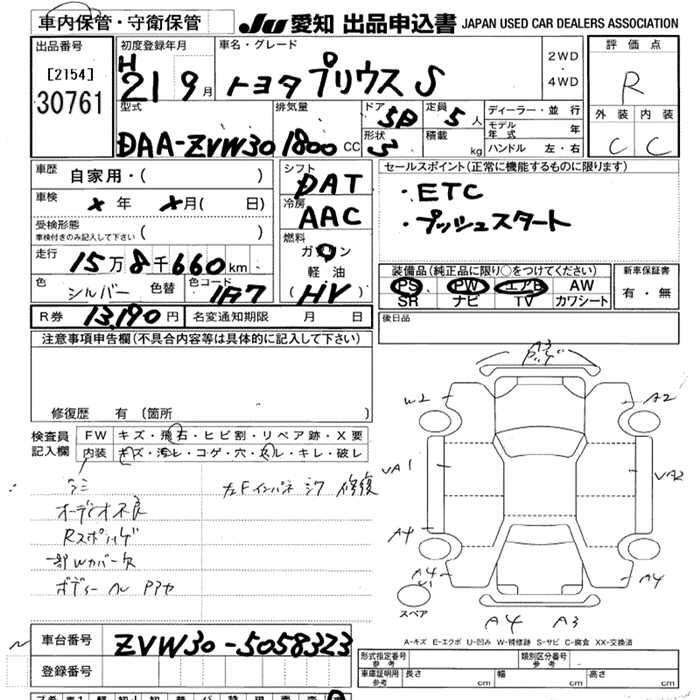 車内保管・守衛保管
JU 愛知 出品申込書 JAPAN USED CAR DEALERS ASSOCIATION
出品番号
[2154]
30761
初度登録年月
H
21 9月
車名・グレード
トヨタ プリウス S
2WD
・
4WD
評価点
R
外装 内装
C C
型式
DAA-ZVW30
排気量
1800 CC
ドア 5D
形状 S
定員 5人
積載 kg
ディーラー・並行
モデル年式 年
ハンドル 左・右
車歴
自家用・( )
車検
× 年 × 月( 日)
受検形態
車検付きのみ記入して下さい ( )
走行
15万8千660km
色 シルバー 色替 色コード 1F7
シフト DAT
冷房 AAC
燃料
ガソリン
軽油
(HV)
セールスポイント(正常に機能するものに限ります)
・ETC
・プッシュスタート
装備品(純正品に限り○をつけてください)
PS PW エアB AW
SR ナビ TV カワシート
新車保証書
有・無
R券 13,190円 名変通知期限 月 日
後日品
注意事項申告欄(不具合内容等は具体的に記入して下さい)
修復歴 有(箇所
検査員記入欄
FW キズ・飛石・ヒビ割・リペア跡・X要
内装 キズ・汚レ・コゲ・穴・スレ・キレ・破レ
左Fインパネ ジク 修復
オーディオ不良
一部Wカバー欠
A3
W2 A2
VA1 VA2
A4
A4 A4
W1
スペア
A4 A3
A-キズ E-エクボ U-凹み W-補修跡 S-サビ C-腐食 XX-交換済
車台番号 ZVW30-5058323
登録番号
形式指定番号 参考
類別区分番号 参考
車庫証明用 参考 長さ cm 幅 cm 高さ cm